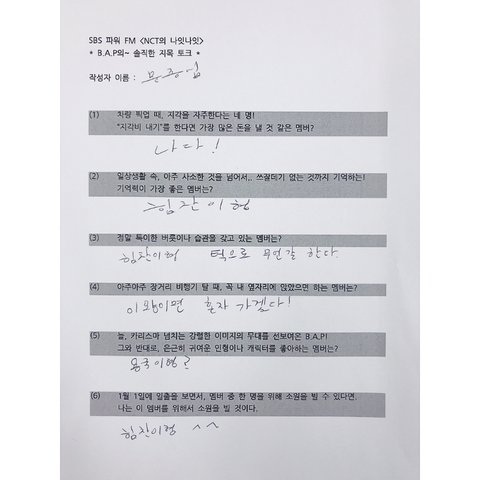 SBS 파워 FM <NCT의 나잇나잇>
* B.A.P의~ 솔직한 지목 토크 *
작성자 이름 : 문종업
(1) 차량 픽업 때, 지각을 자주한다는 네 명!
"지각비 내기"를 한다면 가장 많은 돈을 낼 것 같은 멤버?
나다!
(2) 일상생활 속, 아주 사소한 것을 넘어서.. 쓰잘데기 없는 것까지 기억하는!
기억력이 가장 좋은 멤버는?
힘찬이형
(3) 정말 특이한 버릇이나 습관을 갖고 있는 멤버는?
힘찬이형 턱으로 무언갈 한다.
(4) 아주아주 장거리 비행기 탈 때, 꼭 내 옆자리에 앉았으면 하는 멤버는?
이왕이면 혼자 가겠다!
(5) 늘, 카리스마 넘치는 강렬한 이미지의 무대를 선보여온 B.A.P!
그와 반대로, 은근히 귀여운 인형이나 캐릭터를 좋아하는 멤버는?
용국이형
(6) 1월 1일에 일출을 보면서, 멤버 중 한 명을 위해 소원을 빌 수 있다면,
나는 이 멤버를 위해서 소원을 빌 것이다.
힘찬이형 ^^